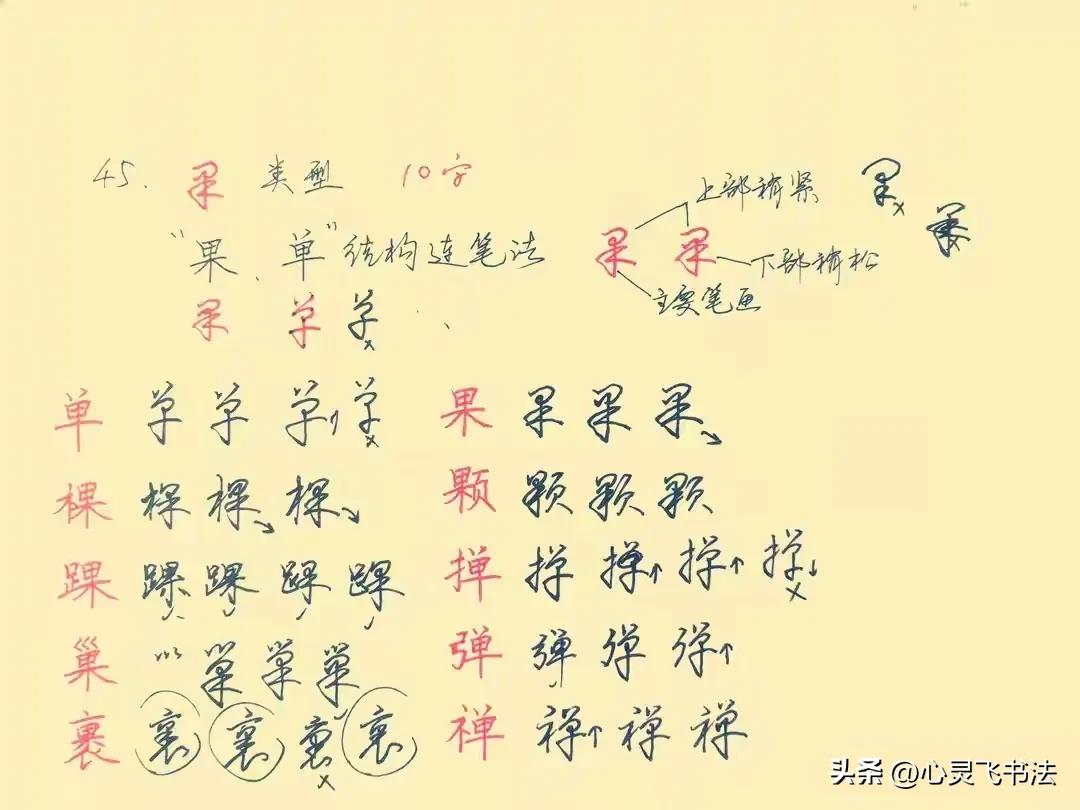 45. 果 类型 10字
上部稍紧
"果、单"结构连笔法
果 果
下部稍松
主要笔画
果 单 单 x
单 单 单 单 单 x
果 果 果 果
棵 棵 棵 棵
颗 颗 颗 颗
踝 踝 踝 踝 踝
掸 掸 掸 掸 掸 x
巢 巢 巢 巢
弹 弹 弹 弹
裹 裹 裹 裹 x 裹
禅 禅 禅 禅
头条 @心灵飞书法